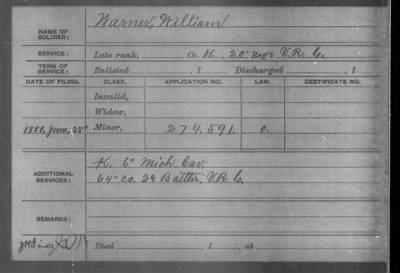 NAME OF SOLDIER: Warner, William
SERVICE: Late rank, Co. H, 20" Reg't V.R.C.
TERM OF SERVICE: Enlisted , 1 Discharged , 1
DATE OF FILING. CLASS. APPLICATION NO. LAW. CERTIFICATE NO.
Invalid,
Widow,
1880, June, 28" Minor, 274.591. O.
ADDITIONAL SERVICES: K. 6" Mich. Cav.
64" Co. 2d Battn. V.R.C.
REMARKS:
Died , 1 , at